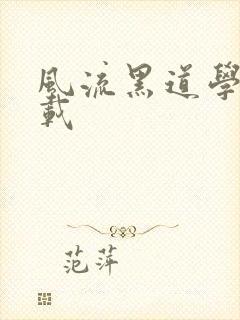 風流黑道學
載
范萍